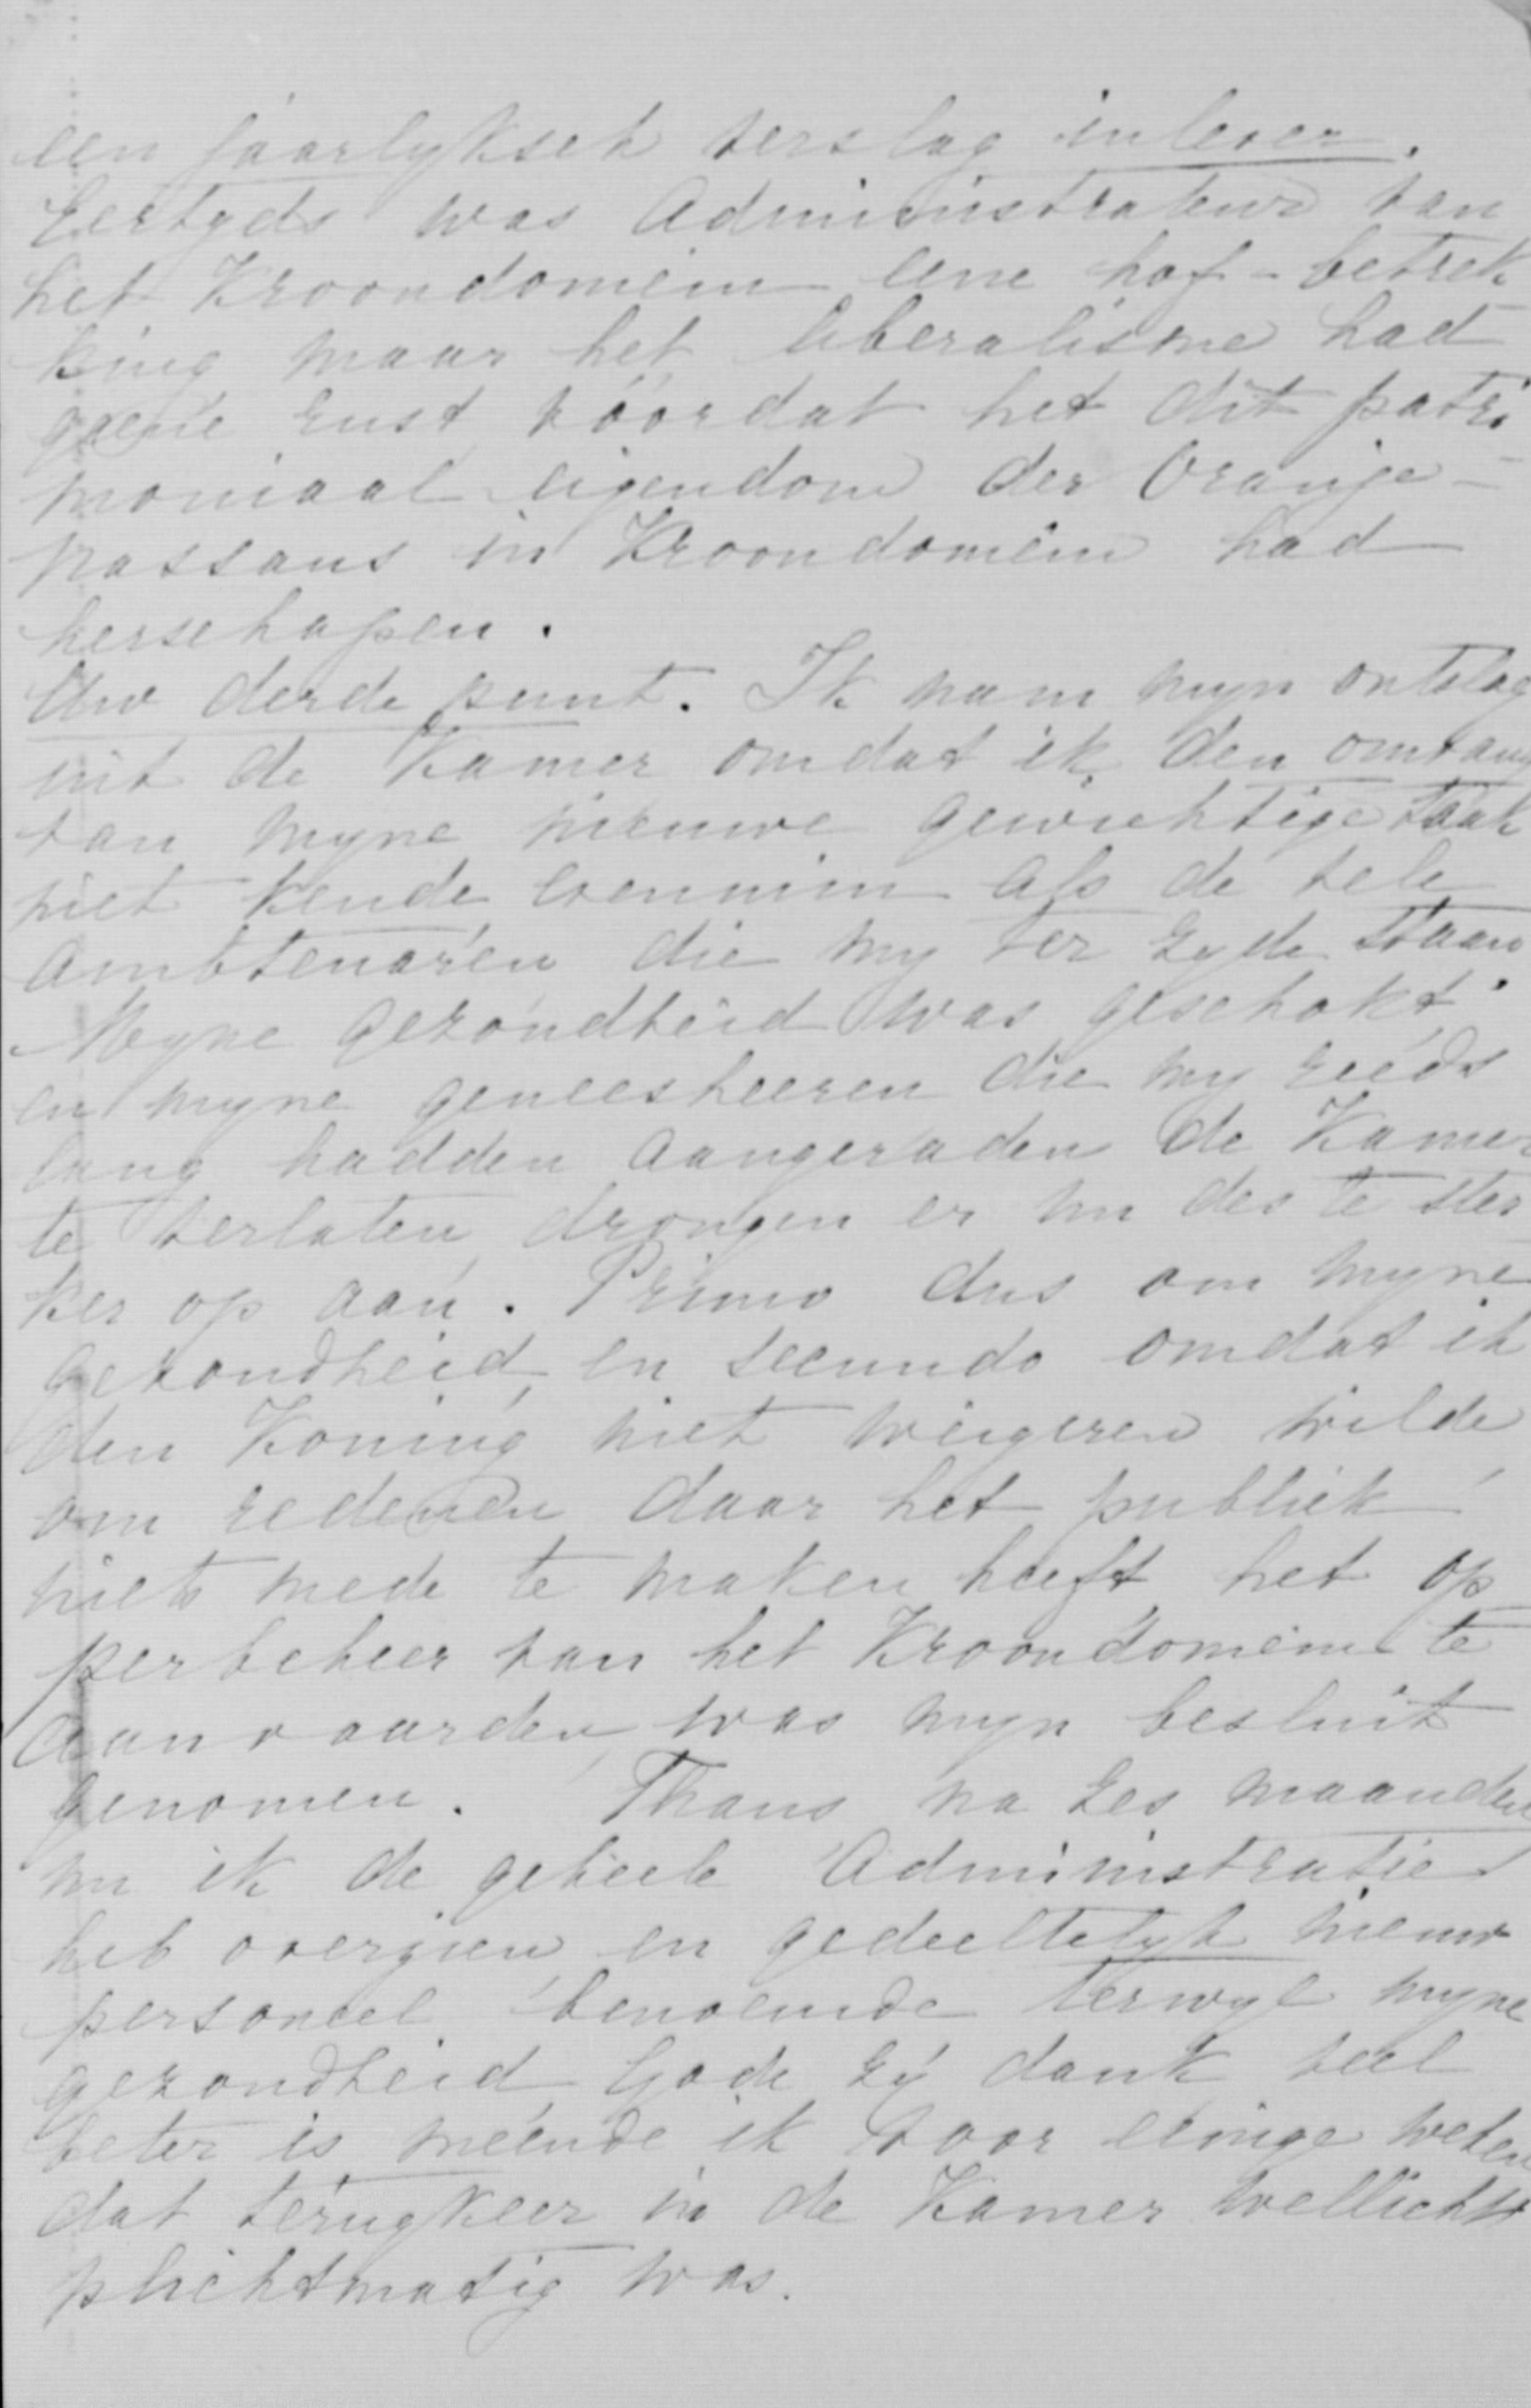 een jaarlyksch verslag inlever.
Eertyds was Administrateur van
het Kroondomein eene hof-betrek
king maar het liberalisme had
geene rust vóórdat het dit patri
moniaal eigendom der Oranje-
nassaus in Kroondomein had
herschapen.
Uw derde punt. Ik nam myn ontslag
uit de Kamer omdat ik den omvang
van myne nieuwe gewichtige taak
niet kende evenmin als de vele
ambtenaren die my ter zyde staan
Myne gezondheid was geschokt
en myne geneesheeren die my reeds
lang hadden aangeraden de Kamer
te verlaten drongen er nu des te ster
ker op aan. Primo dus om myne
gezondheid en secundo omdat ik
den Koning niet weigeren wilde
om redenen daar het publiek
niets mede te maken heeft het op
perbeheer van het Kroondomein te
aanvaarden, was myn besluit
genomen. Thans na zes maanden
nu ik de geheele Administratie
heb overzien en gedeeltelyk nieuw
personeel benoemde terwyl myne
gezondheid Gode zy dank veel
beter is meende ik voor eenige weken
dat terugkeer in de Kamer wellicht
plichtmatig was.